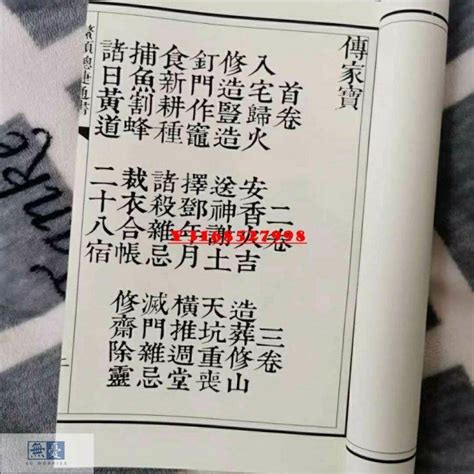 傳家寶
首卷
入宅歸火
修造豎造
釘門作竈
食新耕種
捕魚割蜂
諸日黃道
二卷
安香火吉
送神謝土
擇鄧年月
諸殺雜忌
裁衣合帳
二十八宿
三卷
造葬修山
天坑重喪
橫推週堂
滅門雜忌
修齋除靈
二
無憂
NO WORRIES